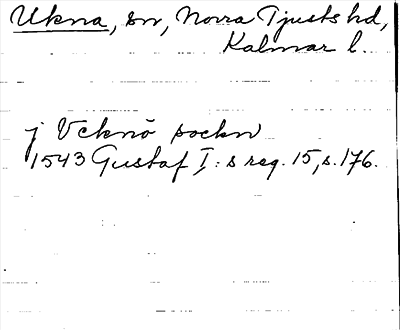 Ukna, sn, Norra Tjusts hd,
Kalmar l.
j Vcknö sockn
1543 Gustaf I:s reg. 15, s. 176.